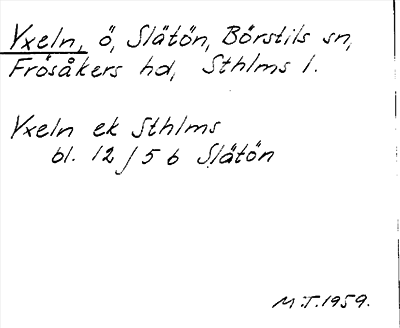 Yxeln, ö, Slätön, Börstils sn,
Frösåkers hd, Sthlms l.
Yxeln ek Sthlms
bl. 12 J 5 b Slätön
M.T.1959.